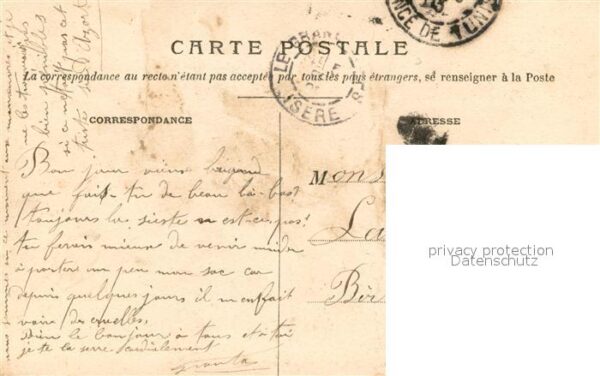 CARTE POSTALE
La correspondance au recto n'étant pas acceptée par tous les pays étrangers, se renseigner à la Poste
CORRESPONDANCE
ADRESSE
ISÈRE
DE TUNI
Bon jour vieux brigand
que fais-tu de beau là-bas?
toujours la sieste n'est-ce pas?
tu ferais mieux de venir m'aider
à porter un peu mon sac car
depuis quelques jours il m'en fait
voire de cruelles.
Bien le bonjour à tous et à toi
je te la serre cordialement
nous sommes en ce moment aux manœuvres et je
bien pénibles
si ce n'était pas cet
Mons
La
privacy protection
Datenschutz